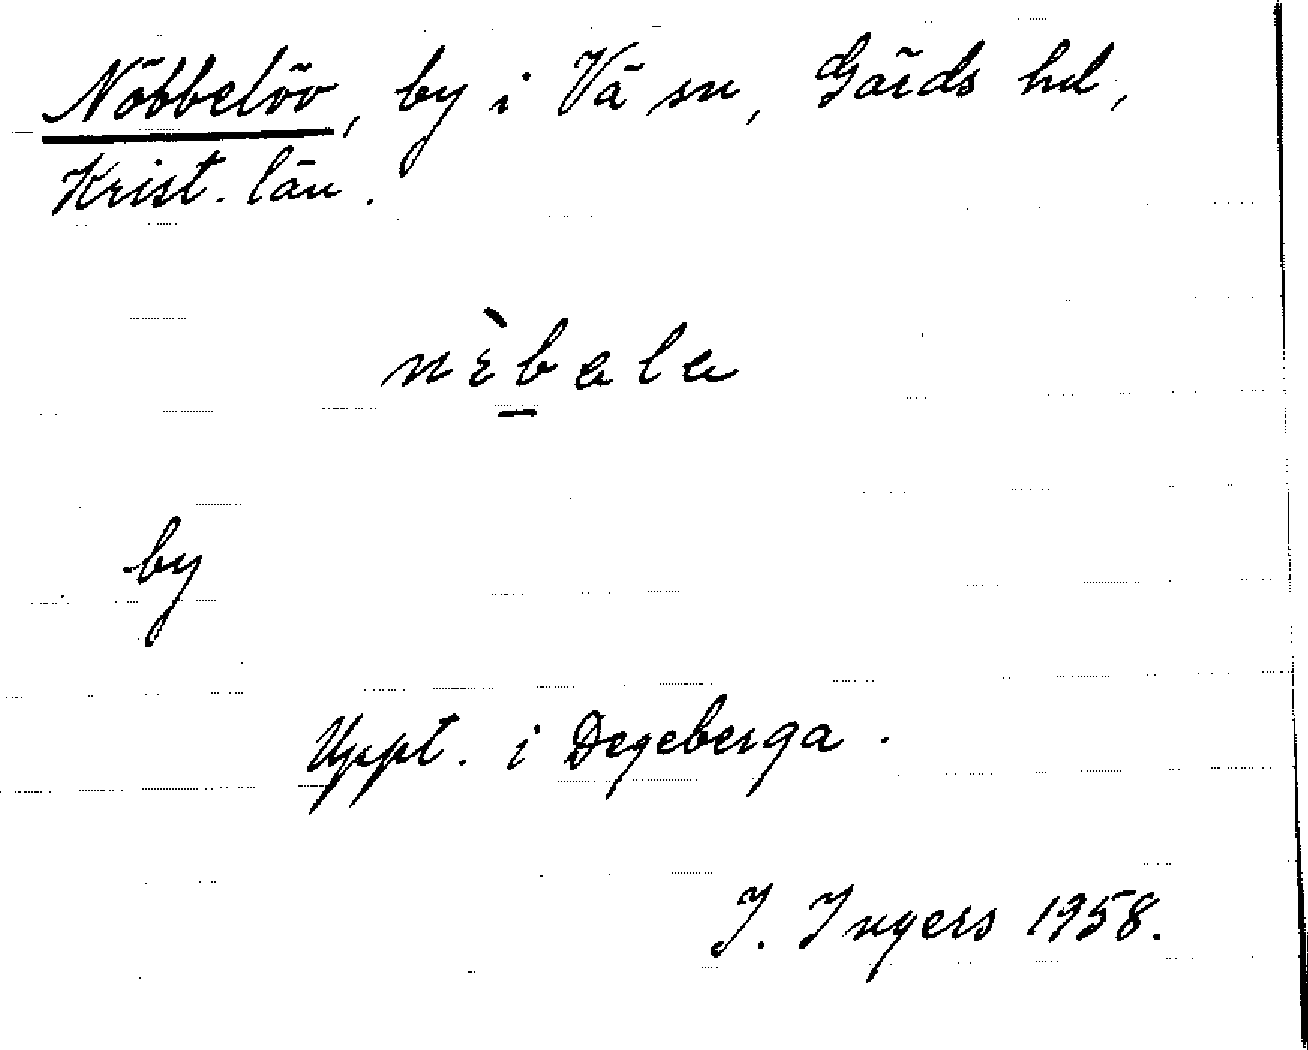 Nöbbelöv, by i Vä sn, Gärds hd,
Krist. län.
nɛ̀b̲ala
by
Uppt. i Degeberga.
I. Ingers 1958.